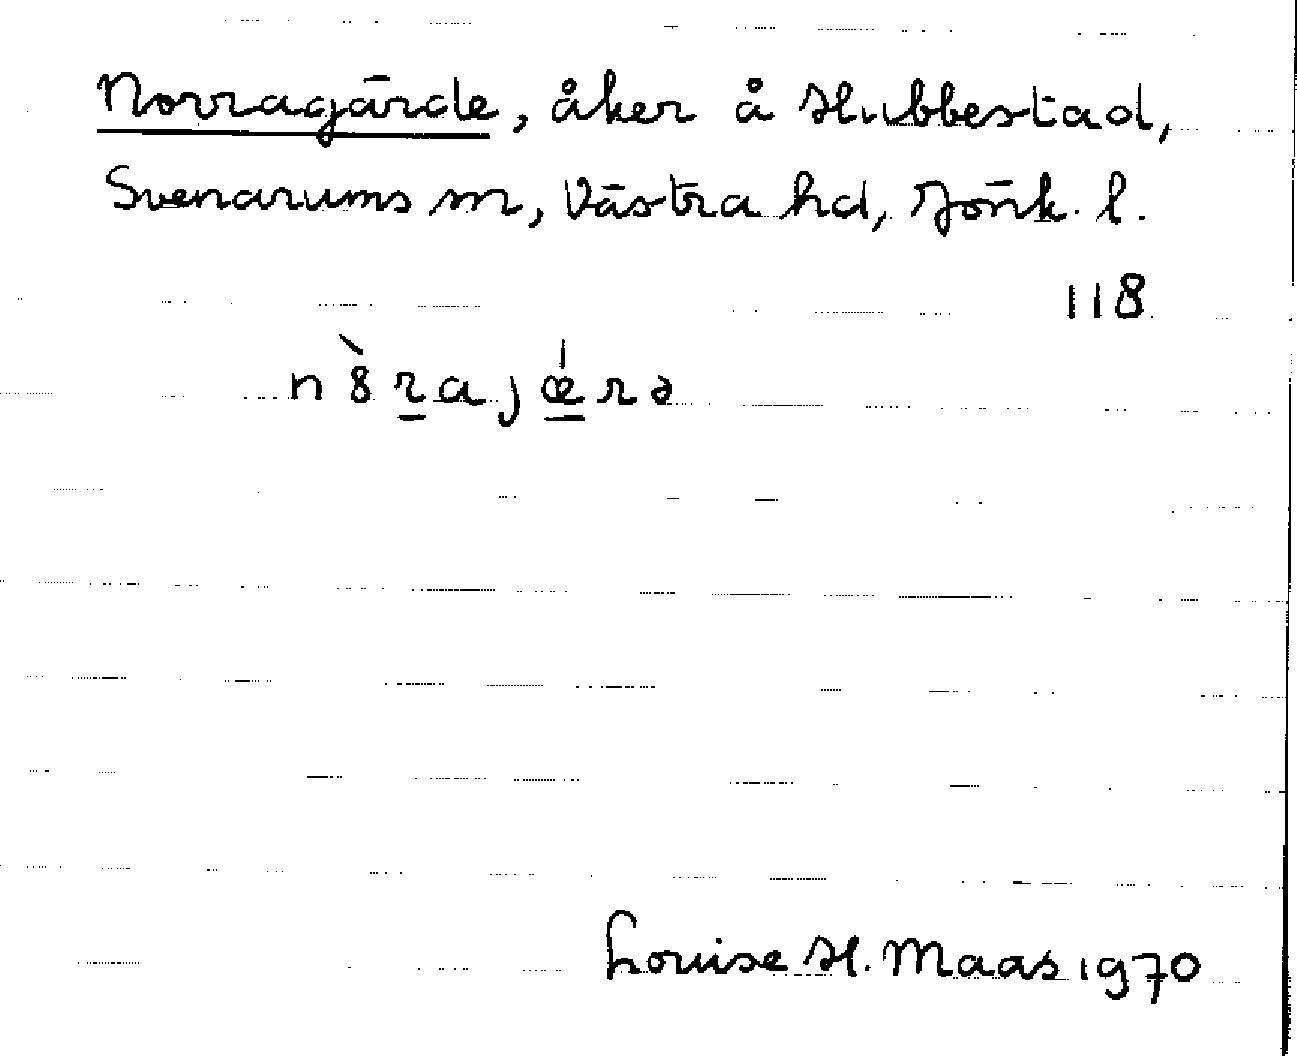 Norragärde, åker å Hubbestad,
Svenarums sn, Västra hd, Jönk. l.
118
n ȣ̀ r̲ a j ǽ̲ r ə
Louise H. Maas 1970